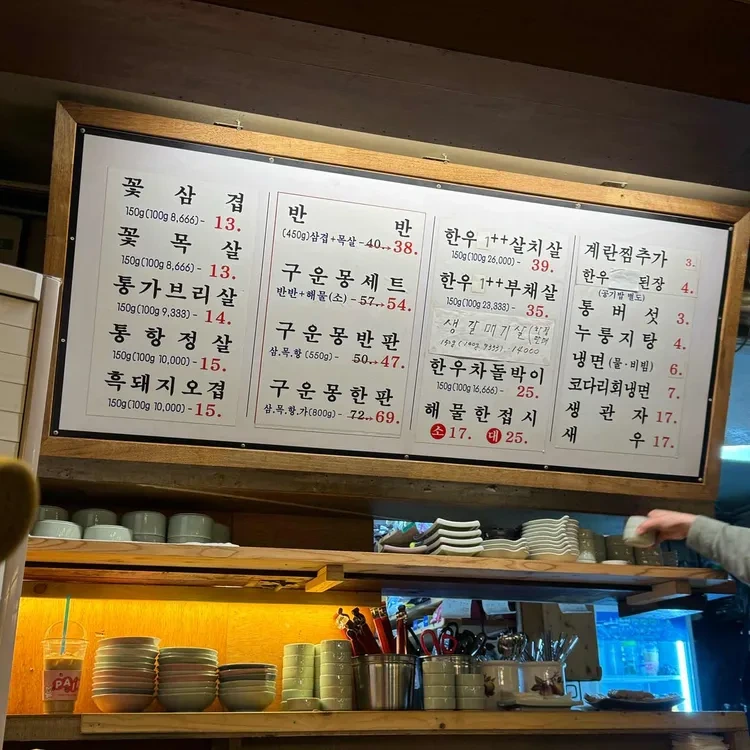 꽃 삼 겹
150g(100g 8,666)- 13.
꽃 목 살
150g(100g 8,666)- 13.
통가브리살
150g(100g 9,333)- 14.
통항정살
150g(100g 10,000)- 15.
흑돼지오겹
150g(100g 10,000)- 15.
반 반
(450g)삼겹+목살-40→38.
구운몽세트
반반+해물(소)-57→54.
구운몽반판
삼.목.항(550g)- 50→47.
구운몽한판
삼.목.항.가(800g)-72→69.
한우1++살치살
150g(100g 26,000)- 39.
한우1++부채살
150g(100g 23,333)- 35.
생갈매기살
150g 14000
한우차돌박이
150g(100g 16,666)- 25.
해물한접시
소 17. 대 25.
계란찜추가 3.
한우 된장 4.
(공기밥 별도)
통 버 섯 3.
누룽지탕 4.
냉면(물·비빔) 6.
코다리회냉면 7.
생 관 자 17.
새 우 17.